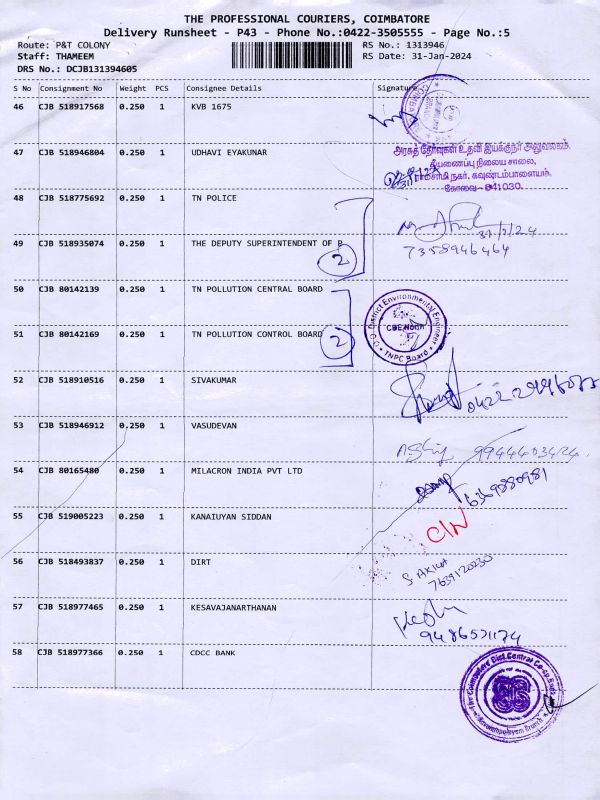 THE PROFESSIONAL COURIERS, COIMBATORE
Delivery Runsheet - P43 - Phone No.:0422-3505555 - Page No.:5
Route: P&T COLONY
RS No.: 1313946
Staff: THAMEEM
RS Date: 31-Jan-2024
DRS No.: DCJB131394605
S No Consignment No Weight PCS Consignee Details Signature
46 CJB 518917568 0.250 1 KVB 1675
47 CJB 518946804 0.250 1 UDHAVI EYAKUNAR
அரசுத் தேர்வுகள் உதவி இயக்குநர் அலுவலகம்,
தீயணைப்பு நிலைய சாலை,
நகர், கவுண்டம்பாளையம்,
கோவை - 641030.
48 CJB 518775692 0.250 1 TN POLICE
31/1/24
49 CJB 518935074 0.250 1 THE DEPUTY SUPERINTENDENT OF P
7358946464
2
50 CJB 80142139 0.250 1 TN POLLUTION CENTRAL BOARD
District Environmental Engineer
CBE North
TNPC Board
51 CJB 80142169 0.250 1 TN POLLUTION CONTROL BOARD
2
52 CJB 518910516 0.250 1 SIVAKUMAR
53 CJB 518946912 0.250 1 VASUDEVAN
9944403424
54 CJB 80165480 0.250 1 MILACRON INDIA PVT LTD
6369880981
55 CJB 519005223 0.250 1 KANAIUYAN SIDDAN
C/N
56 CJB 518493837 0.250 1 DIRT
7639120230
57 CJB 518977465 0.250 1 KESAVAJANARTHANAN
58 CJB 518977366 0.250 1 CDCC BANK
The Coimbatore Dist. Central Co-op. Bank